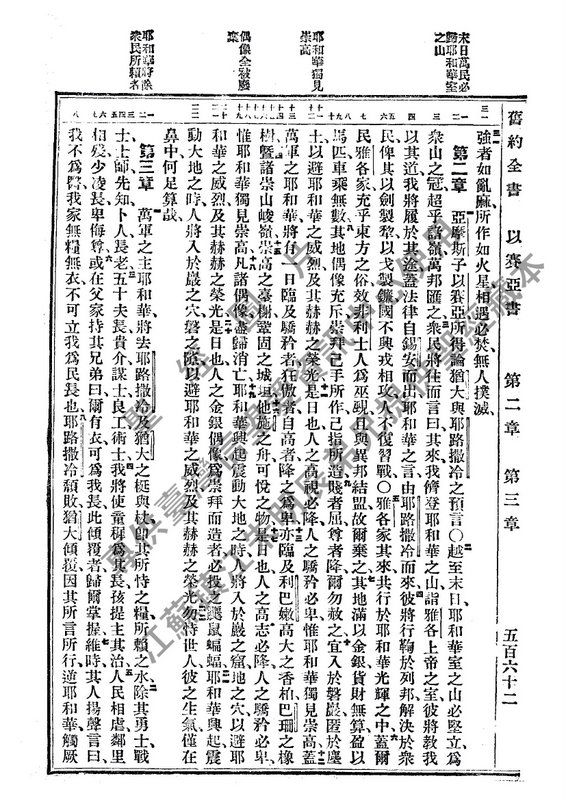 末日萬民必
歸耶和華室
之山
耶和華獨見
崇高
偶像全被廢
棄
耶和華將除
衆民所賴者
舊約全書 以賽亞書 第二章 第三章 五百六十二
強者如亂麻所作如火星相遇必焚無人撲滅
第二章 亞摩斯子以賽亞所得論猶大與耶路撒冷之預言○越至末日耶和華室之山必堅立爲
衆山之冠超乎諸嶺萬邦匯之衆民將往而言曰其來我儕登耶和華之山詣雅各上帝之室彼將教我
以其道我將履於其途蓋法律自錫安而出耶和華之言由耶路撒冷而來彼將行鞫於列邦解決於衆
民俾其以劍製犂以戈製鐮國不興戎相攻人不復習戰○雅各家其來共行於耶和華光輝之中蓋爾
民雅各家充乎東方之俗效非利士人爲巫覡且與異邦結盟故爾棄之其地滿以金銀貨財無算盈以
馬匹車乘無數其地偶像充斥崇拜己手所作己指所造賤者屈尊者降爾勿赦之宜入於磐巖匿於塵
土以避耶和華之威烈及其赫赫之榮光是日也人之高視必降人之驕矜必卑惟耶和華獨見崇高蓋
萬軍之耶和華將有一日臨及驕矜者狂傲者自高者降之爲卑亦臨及利巴嫩高大之香柏巴珊之橡
樹暨諸崇山峻嶺崇高之臺榭鞏固之城垣他施之舟可悅之物是日也人之高志必降人之驕矜必卑
惟耶和華獨見崇高凡諸偶像盡歸消亡耶和華興起震動大地之時人將入於巖之窟地之穴以避耶
和華之威烈及其赫赫之榮光是日也人之金銀偶像爲崇拜而造者必投之鼷鼠蝙蝠耶和華興起震
動大地之時人將入於巖之穴磐之隙以避耶和華之威烈及其赫赫之榮光勿恃世人彼之生氣僅在
鼻中何足算哉
第三章 萬軍之主耶和華將去耶路撒冷及猶大之梃與杖卽其所恃之糧所賴之水除其勇士戰
士士師先知卜人長老五十夫長貴介謀士良工術士我將使童稺爲其長孩提主其治人民相虐鄰里
相殘少凌長卑侮尊或在父家持其兄弟曰爾有衣可爲我長此傾覆者歸爾掌握維時其人揚聲言曰
我不爲醫我家無糧無衣不可立我爲民長也耶路撒冷頹敗猶大傾覆因其所言所行逆耶和華觸厥